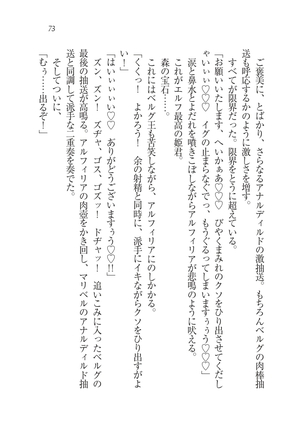 73
ご褒美に、とばかり、さらなるアナルディルドの激抽送。もちろんベルグの肉棒抽
送も呼応するかのように激しさを増す。
すべてが限界だった。限界をとうに超えていた。
「お願いいたします、へいかぁあ♡♡　びやくまみれのクソをひり出させてくださ
ゃいぃぃ♡♡　イグの止まらなぐでっっ、もうぐるってしまいますぅぅう♡♡♡」
涙と鼻水とよだれを噴きこぼしながらアルフィリアが悲鳴のように吠える。
これがエルフ最高の姫君。
森の宝石……。
これにはベルグ王も苦笑しながら、アルフィリアにのしかかる。
「くくっ！　よかろう！　余の射精と同時に、派手にイキながらクソをひり出すがよ
い！」
「はいぃいぃぃい♡　ありがとうございますぅう♡♡!!」
ズン、ズン！　ズヂャ、ゴス、ゴズッ！　ドヂャッ！　追いこみに入ったベルグの
最後の抽送が高鳴る。アルフィリアの肉壺をかき回し、マリベルのアナルディルド抽
送と同調して派手な二重奏を奏でた。
そしてついに。
「むぅ……出るぞ！」